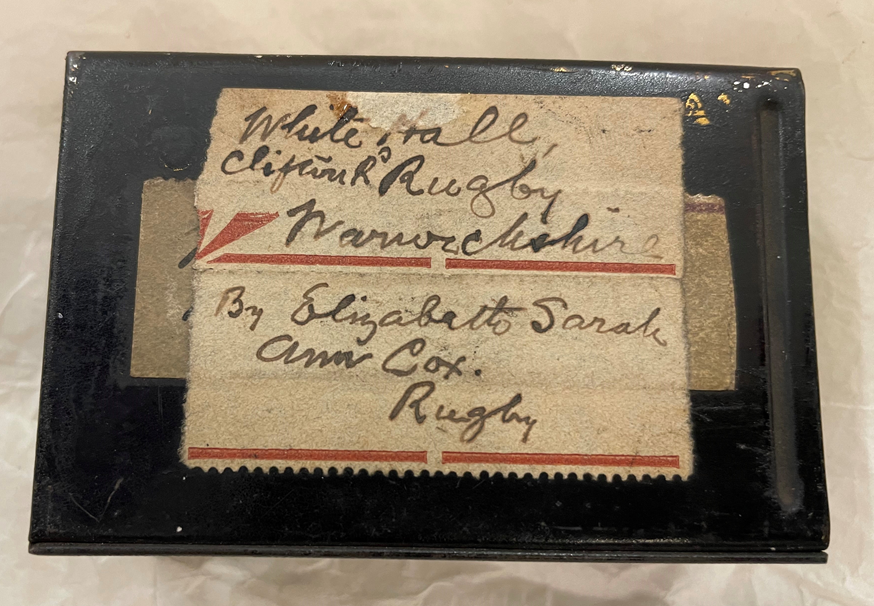 White Hall,
Clifton Rd Rugby
Warwickshire
By Elizabeth Sarah
Ann Cox.
Rugby